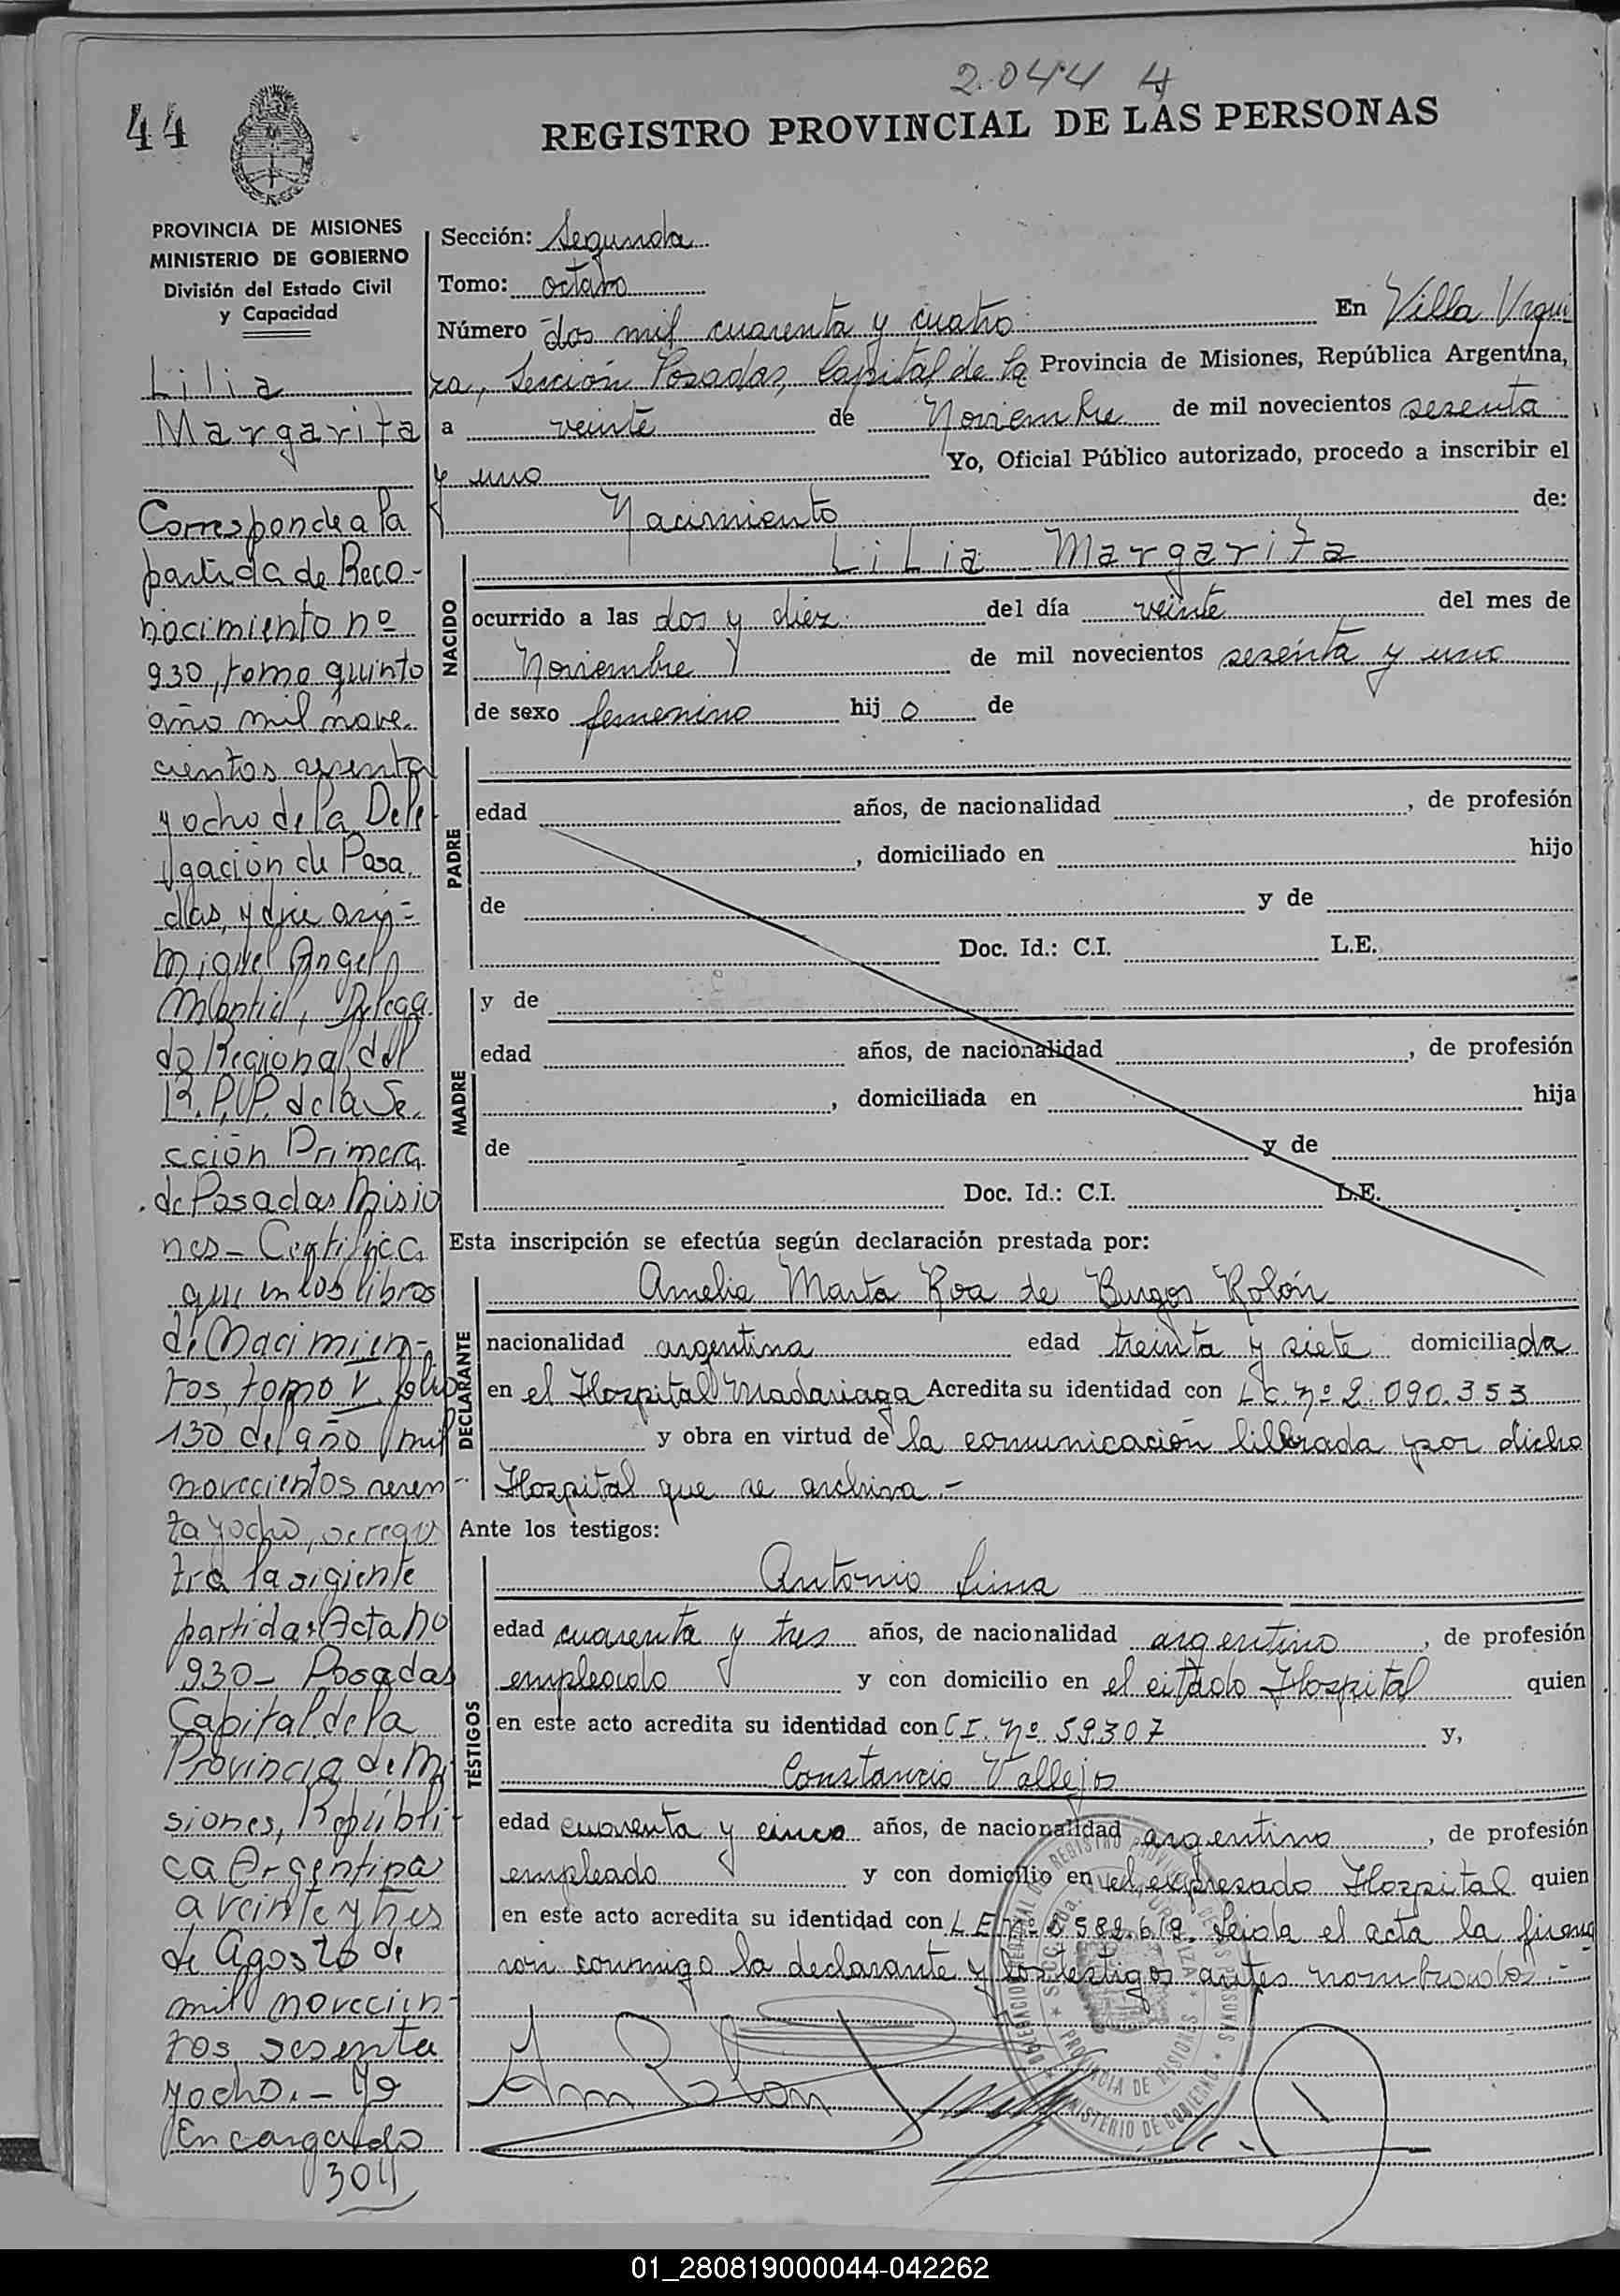 2.044 4
44
REGISTRO PROVINCIAL DE LAS PERSONAS
PROVINCIA DE MISIONES
MINISTERIO DE GOBIERNO
División del Estado Civil
y Capacidad
Lilia
Margarita
Corresponde a la
partida de Reco-
nocimiento nº
930, tomo quinto
año mil nove
cientos sesenta
y ocho de la Dele
gación de Posa
das, y dice así=
Miguel Angel
Delega
do Regional del
R.P.P. de la Se
cción Primera
de Posadas Misio
nes - Certifica
que en los libros
de Nacimien-
tos, tomo V folio
130 del año mil
novecientos sesen
ta y ocho, se regis
tra la sigiente
partida: Acta no
930 - Posadas
Capital de la
Provincia de Mi
siones, Repúbli-
ca Argentina
a veinte y tres
de Agosto de
mil novecien-
tos sesenta
y ocho. - Yo
Encargado
304
Sección: Segunda
Tomo: octavo
Número dos mil cuarenta y cuatro En Villa Urqui
za, Sección Posadas, Capital de la Provincia de Misiones, República Argentina,
a veinte de Noviembre de mil novecientos sesenta
y uno Yo, Oficial Público autorizado, procedo a inscribir el
Nacimiento de:
NACIDO
Lilia Margarita
ocurrido a las dos y diez del día veinte del mes de
Noviembre de mil novecientos sesenta y uno
de sexo femenino hij o de
PADRE
edad años, de nacionalidad , de profesión
, domiciliado en hijo
de y de
Doc. Id.: C.I. L.E.
MADRE
y de
edad años, de nacionalidad , de profesión
, domiciliada en hija
de y de
Doc. Id.: C.I. L.E.
Esta inscripción se efectúa según declaración prestada por:
DECLARANTE
Amelia Marta Roa de Burgos Rolón
nacionalidad argentina edad treinta y siete domiciliada
en el Hospital Madariaga Acredita su identidad con L.C. nº 2.090.353
y obra en virtud de la comunicación librada por dicho
Hospital que se archiva.-
Ante los testigos:
TESTIGOS
Antonio
edad cuarenta y tres años, de nacionalidad argentino , de profesión
empleado y con domicilio en el citado Hospital quien
en este acto acredita su identidad con C.I. nº 59.307 y,
Constancio Vallejos
edad cuarenta y cinco años, de nacionalidad argentino , de profesión
empleado y con domicilio en el expresado Hospital quien
en este acto acredita su identidad con L.E. nº Leida el acta la firma
ron conmigo la declarante y los testigos antes nombrados.-
PROVINCIA DE MISIONES
MINISTERIO DE GOBIERNO
01_280819000044-042262